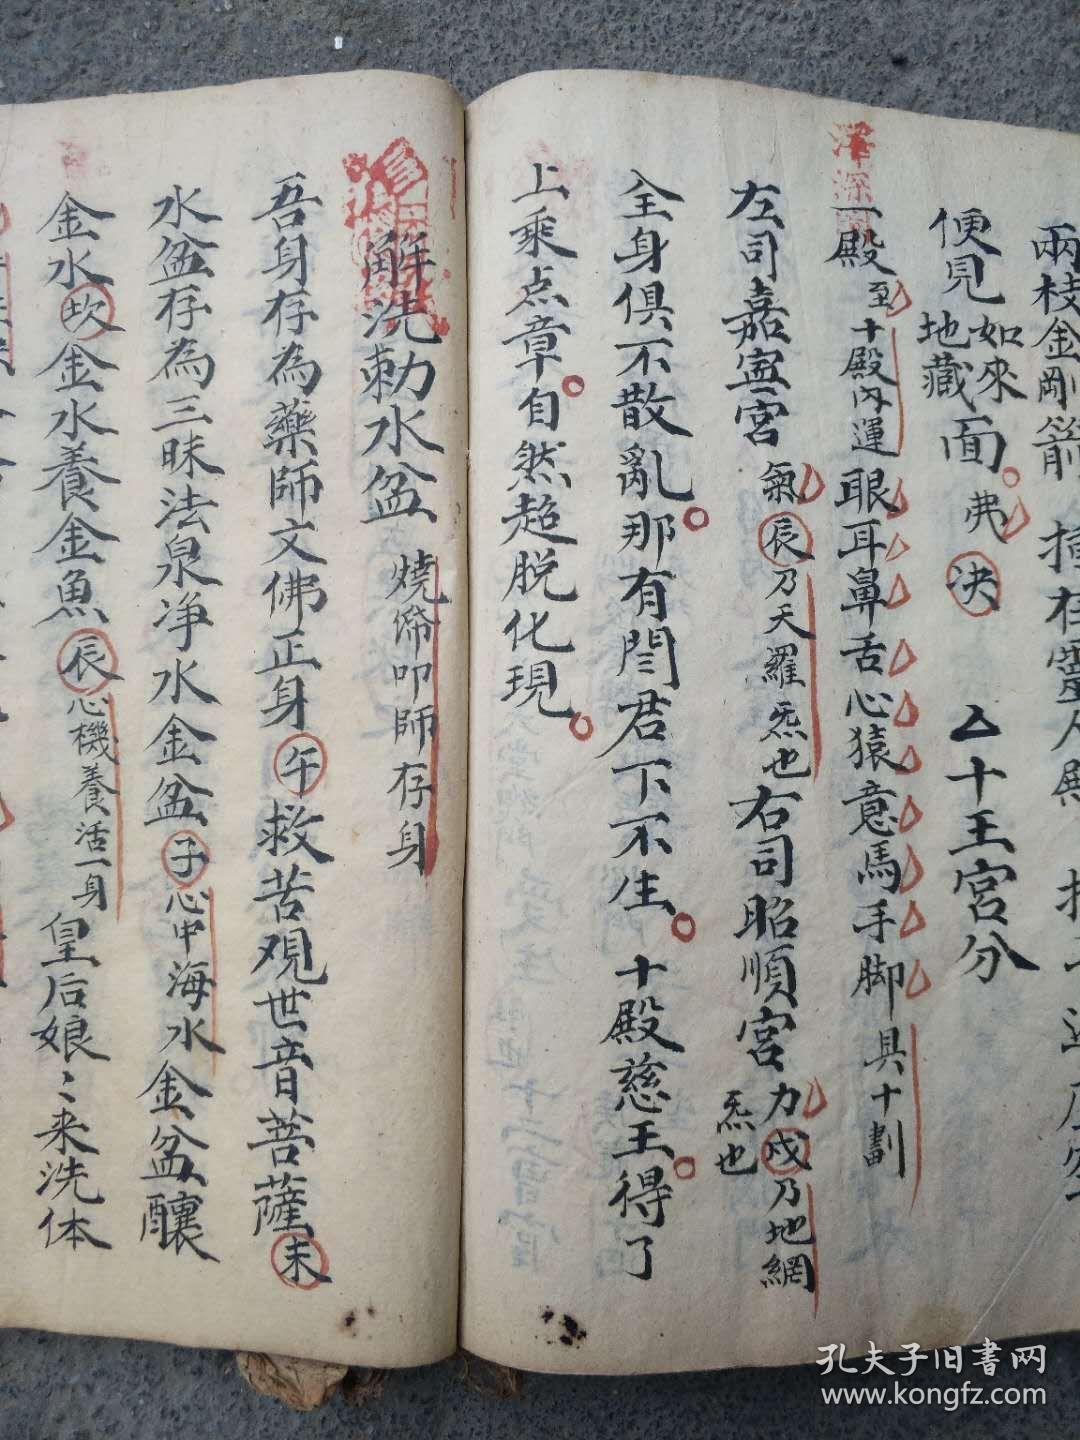 兩枝金剛箭
便見如來地藏面弗决 △十王宮分
一殿至十殿內運眼耳鼻舌心猿意馬手脚具十劃
左司嘉寧宮氣辰乃天羅炁也右司昭順宮力戍乃地網炁也
全身俱不散亂那有閆君下不生十殿慈王得了
上乘点章自然超脱化現
解洗勅水盆 燒俻叩師存身
吾身存為藥師文佛正身午救苦观世音菩薩未
水盆存為三昧法泉净水金盆子心中海水金盆釀
金水坎金水養金魚辰心機養活一身皇后娘〻来洗体
孔夫子旧書网
www.kongfz.com